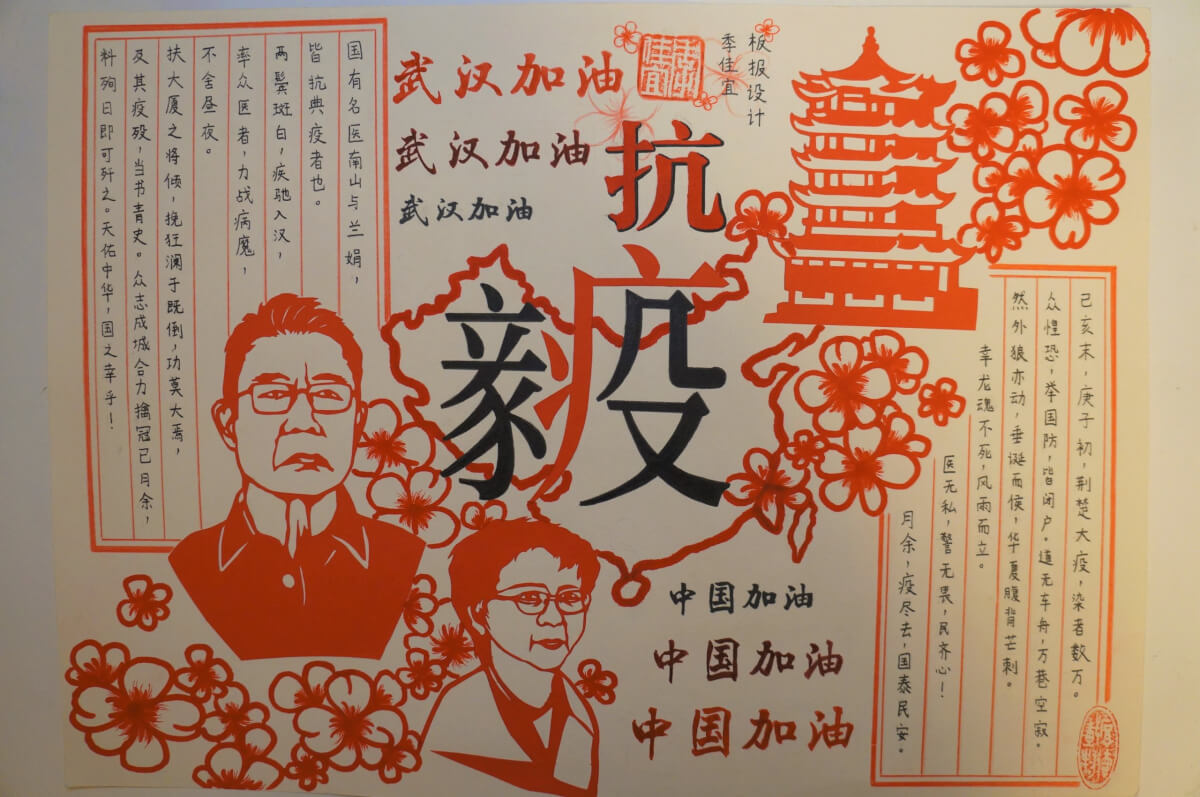 武汉加油
武汉加油
武汉加油
板报设计
季佳宜
抗
疫
己亥末，庚子初，荆楚大疫，染者数万。
众惶恐，举国防，皆闭户。道无车舟，万巷空寂。
然外狼亦动，垂涎而侯，华夏腹背芒刺。
幸龙魂不死，风雨而立。
医无私，警无畏，民齐心！
月余，疫尽去，国泰民安。
国有名医南山与兰娟，
皆抗典疫者也。
两鬓斑白，疾驰入汉，
率众医者，力战病魔，
不舍昼夜。
扶大厦之将倾，挽狂澜于既倒，功莫大焉，
及其疫殁，当书青史。众志成城合力擒冠已月余，
料殉日即可歼之。天佑中华，国之幸乎！
中国加油
中国加油
中国加油